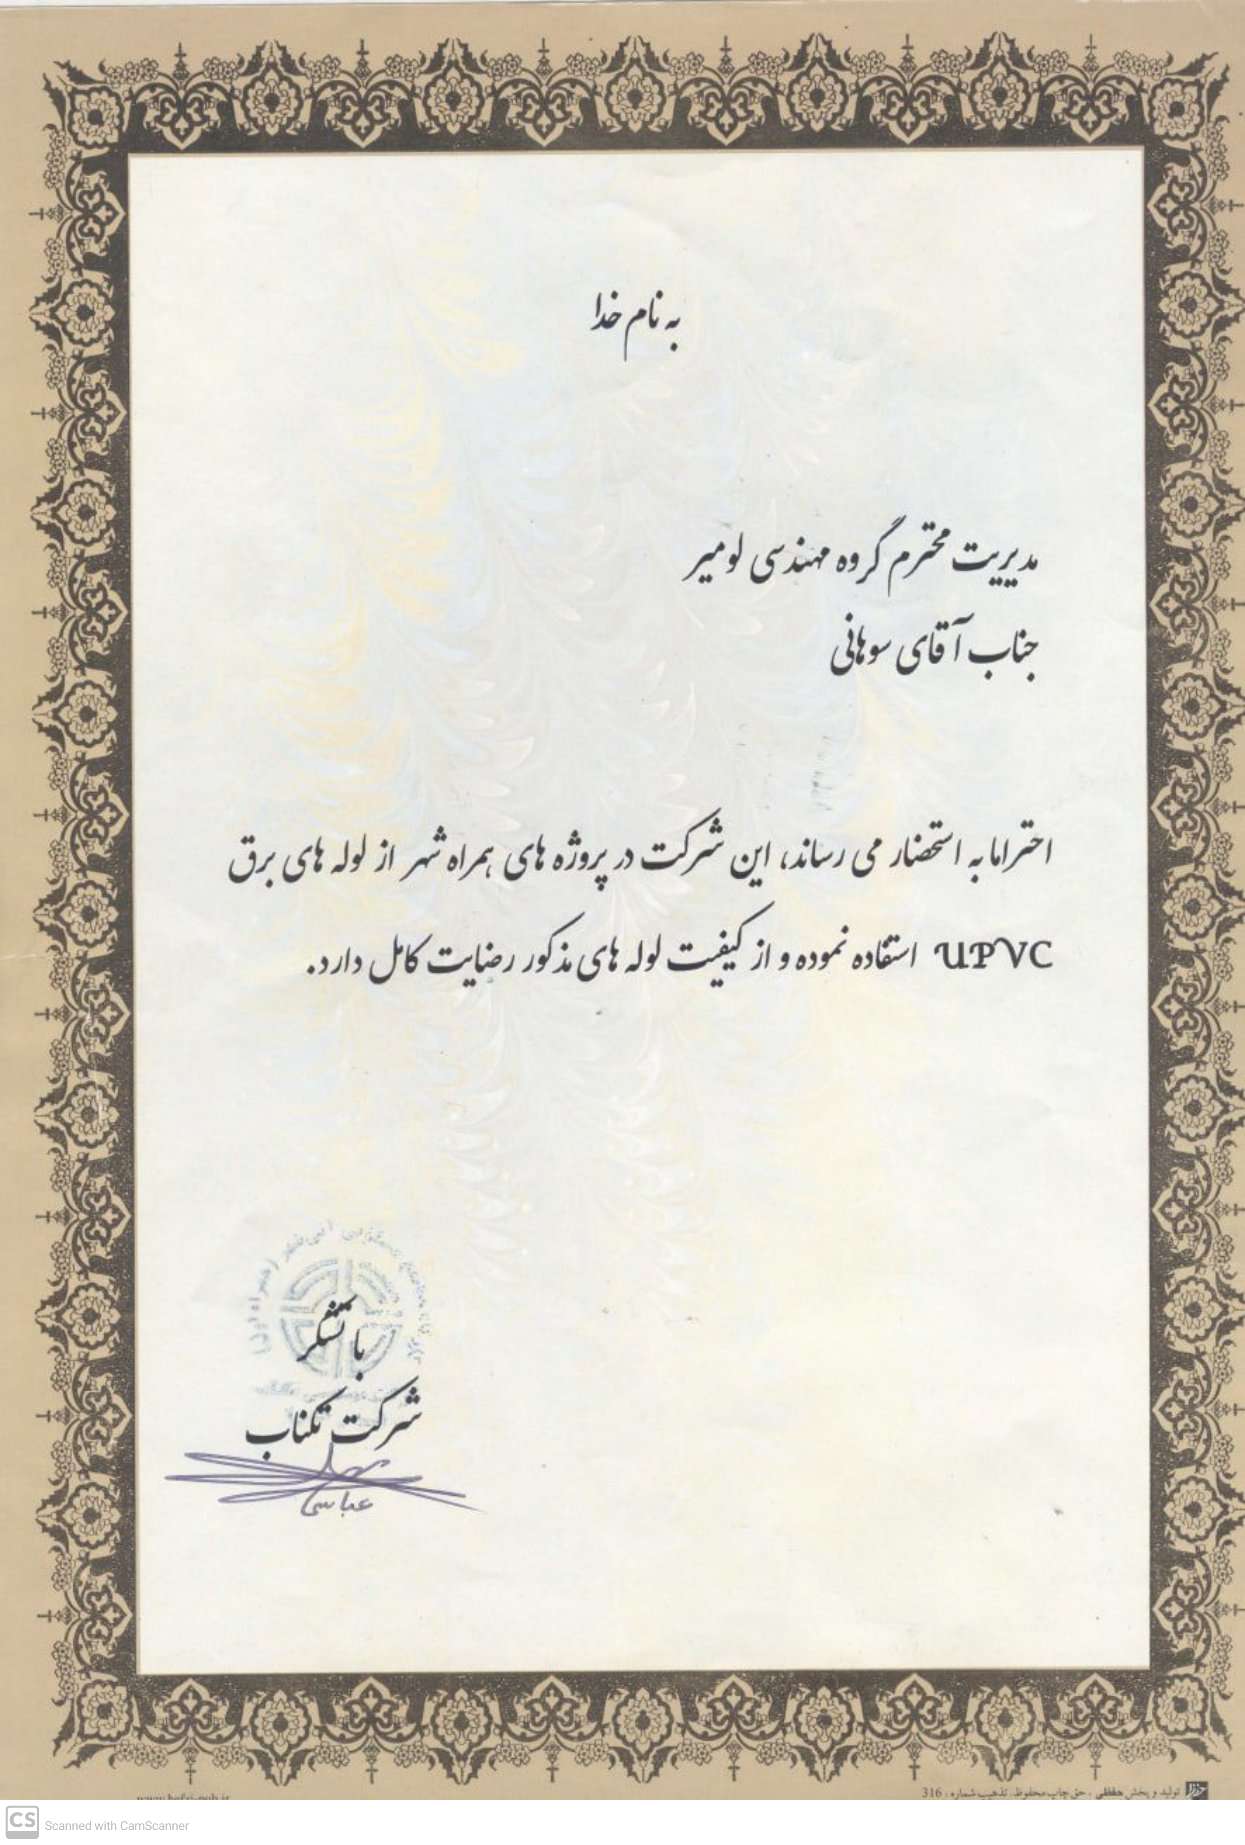 به نام خدا
مدیریت محترم گروه مهندسی لومیر
جناب آقای سوهانی
احتراما به استحضار می رساند، این شرکت در پروژه های همراه شهر از لوله های برق
UPVC استفاده نموده و از کیفیت لوله های مذکور رضایت کامل دارد.
با تشکر
شرکت تکناب
عباسی
تولید و پخش حفظی . حق چاپ محفوظ. تذهیب شماره : 316
CS Scanned with CamScanner